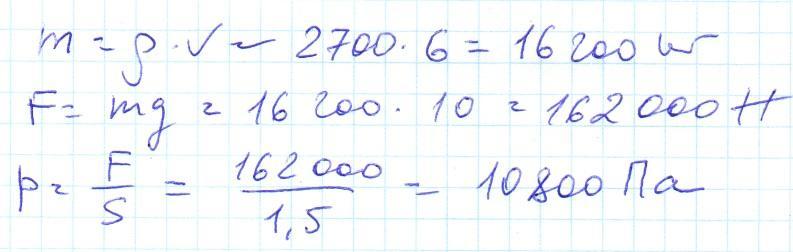 m = ρ · V = 2700 · 6 = 16 200 кг
F = mg = 16 200 · 10 = 162 000 Н
p = F/S = 162 000/1,5 = 10800 Па